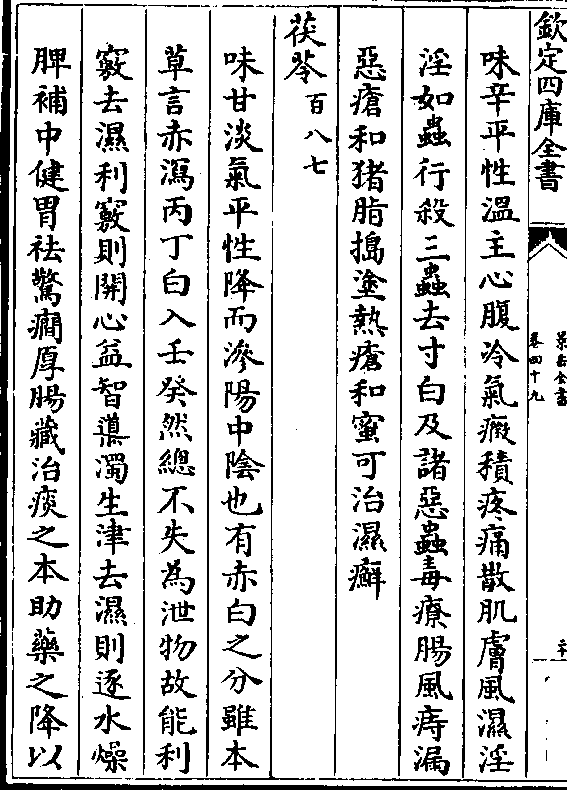 欽定四庫全書
景岳全書
卷四十九
味辛平性溫主心腹冷氣癥積疼痛散肌膚風濕淫
淫如蟲行殺三蟲去寸白及諸惡蟲毒療腸風痔漏
惡瘡和猪脂搗塗熱瘡和蜜可治濕癬
茯苓百八七
味甘淡氣平性降而滲陽中陰也有赤白之分雖本
草言赤瀉丙丁白入壬癸然總不失為泄物故能利
竅去濕利竅則開心益智導濁生津去濕則逐水燥
脾補中健胃祛驚癇厚腸藏治痰之本助藥之降以